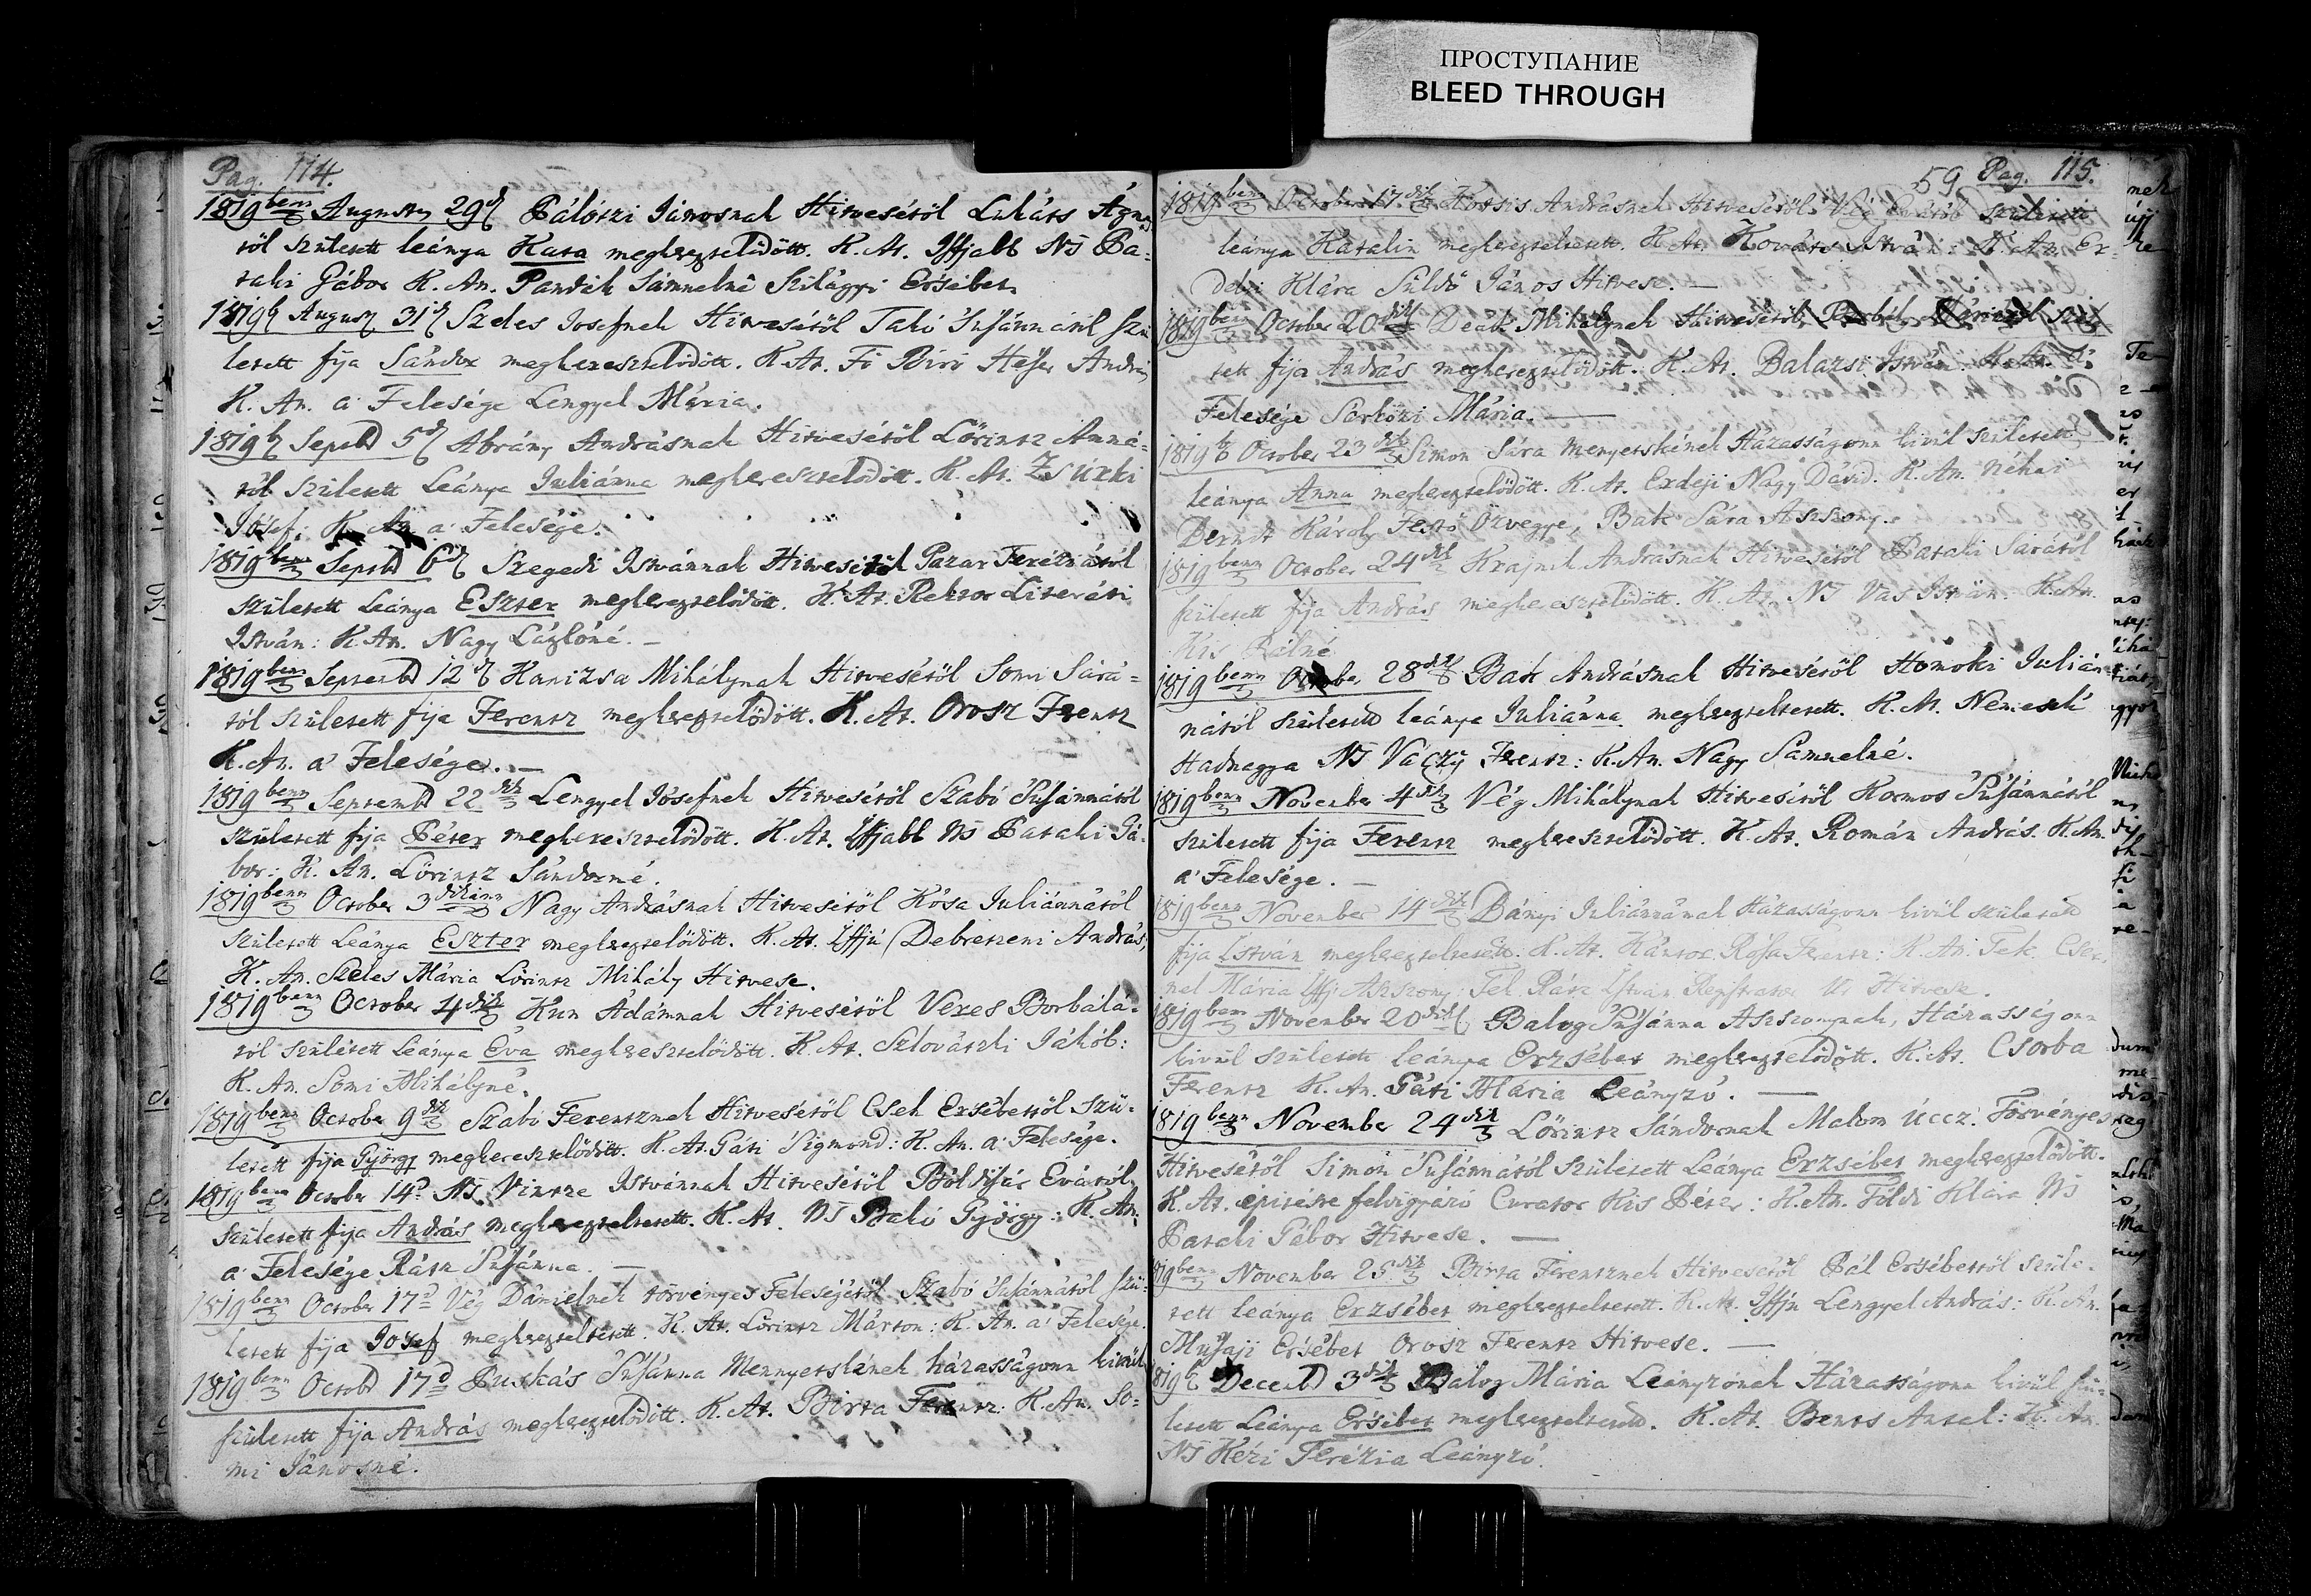 ПРОСТУПАНИЕ
BLEED THROUGH
Pag. 114.
1819benn Augusztus 29d Pálótzi Jánosnak Hitvesétöl Lukáts Ágnes
töl született leánya Kata megkereszteltödött. K. At. Iffjabb NS Pa=
taki Gábor K. An. Pandik Sámuelné Szilágyi Ersébet.
1819b August 31d Szeles Josefnek Hitvesétöl Takó Susánnátol szü
letett fija Sándor megkeresztelödött. K. At. Fö Biró Heffer András
K. An. a' Felesége Lengyel Mária.
1819b Septbr 5d Ábrány Andrásnak Hitvesétöl Lörintz Anná=
tól született Leánya Juliánna megkeresztelödött. K. At. Zsúrki
Jósef: K. An. a' Felesége.
1819benn Septbr 6d Szegedi Istvánnak Hitvesétöl Pazar Teréziától
született Leánya Eszter megkeresztelödött. K. At. Rektor Literáti
István: K. An. Nagy Lázlóné. —
1819benn Septembr 12d Kanizsa Mihálynak Hitvesétöl Somi Sárá=
tól született fija Ferentz megkeresztelödött. K. At. Orosz Ferentz
K. An. a' Felesége. —
1819benn Septembr 22dik Lengyel Jósefnek Hitvesétöl Szabó Susánnától
született fija Péter megkeresztelödött. K. At. Iffjabb NS Pataki Gá=
bor: K. An. Lörintz Sándorné.
1819benn October 3dikánn Nagy Andrásnak Hitvesétöl Kósa Juliánnától
született Leánya Eszter megkeresztelödött. K. At. Iffjú Debretzeni András,
K. An. Szeles Mária Lörintz Mihály Hitvese.
1819benn October 4dik Kun Ádámnak Hitvesétöl Veres Borbálá=
tól született Leánya Éva megkeresztelödött. K. At. Szlovátzki Jákób:
K. An. Somi Mihályné.
1819benn October 9dik Szabó Ferentznek Hitvesétöl Cseh Ersébettöl szü=
letett fija György megkeresztelödött. K. At. Gáti Sigmond: K. An. a' Felesége.
1819benn October 14d NS. Vintze Istvánnak Hitvesétöl Évától
született fija András megkereszteltetett. K. At. NS Bakó György: K. An.
a' Felesége Rátz Susánna. —
1819benn October 17d Vég Dánielnek törvényes Feleségétöl Szabó Susánnától szü=
letett fija Josef megkereszteltetett. K. At. Lörintz Márton: K. An. a' Felesége.
1819benn Octobr 17d Puskás Susánna Mennyetskének házasságonn kívül
született fija András megkeresztelödött. K. At. Birta Ferentz: K. An. So=
mi Jánosné.
59 Pag. 115.
1819benn October 17dik Andrásnak Hitvesétöl Vég született
leánya Katalin megkereszteltetett. K. At. Kováts István: K. An. Er=
délyi Klára Süldö János Hitvese. —
1819benn October 20dik Deák Mihálynak Hitvesétöl Máriától szü
tett fija András megkeresztelödött. K. At. Balázsi István. K. An. a'
Felesége Sarközi Mária. —
1819b October 23dik Simon Sára Menyetskének Házasságonn kivül született
leánya Anna megkeresztelödött. K. At. Erdeji Nagy Dávid. K. An. néhai
Berndt Károly Festö Özvegye, Bak Sára Aszszony.
1819benn October 24dik Krajnik Andrásnak Hitvesétöl Pataki Sárától
született fija András megkeresztelödött. K. At. NS Vas István. K. An.
Kis Pálné
1819benn October 28dik Bak Andrásnak Hitvesétöl Homoki Julián=
nától született leánya Juliánna megkereszteltetett. K. At. Nemesek
Hadnagya NS Váczÿ Ferentz: K. An. Nagy Sámuelné.
1819benn November 4dik Vég Mihálynak Hitvesétöl Kormos Susánnától
született fija Ferentz megkeresztelödött. K. At. Román András. K. An.
a' Felesége. —
1819benn November 14dik Bányi Juliánnának Házasságonn kivül született
fija István megkereszteltetett. K. At. Kántor Rósa Ferentz: K. An. Tek.
Mária Iffj Aszszony, Rátz István Registrator Úr Hitvese.
1819benn November 20dik Balog Susánna Aszszonynak, Házasságonn
kivül született leánya Erzsébet megkeresztelödött. K. At. Csorba
Ferentz K. An. Gáti Mária Leányzó. —
1819benn November 24dik Lörintz Sándornak Malom Úccz. Törvényes
Hitvesétöl Simon Susánnától született Leánya Erzsébet megkeresztelödött.
K. At. épitésre felvigyázó Curator Kis Péter: K. An. Földi Klára NS
Pataki Gábor Hitvese. —
1819benn November 25dik Birta Ferentznek Hitvesétöl Pál Ersébettöl szüle=
tett leánya Erzsébet megkereszteltetett. K. At. Iffjú Lengyel András: K. An.
Musaji Ersébet Orosz Ferentz Hitvese. —
1819b Decembr 3dik Balog Mária Leányzónak Házasságonn kivül szü=
letett Leánya Ersébet megkereszteltetett. K. At. Bents Antal: K. An.
NS Kézi Terézia Leányzó.